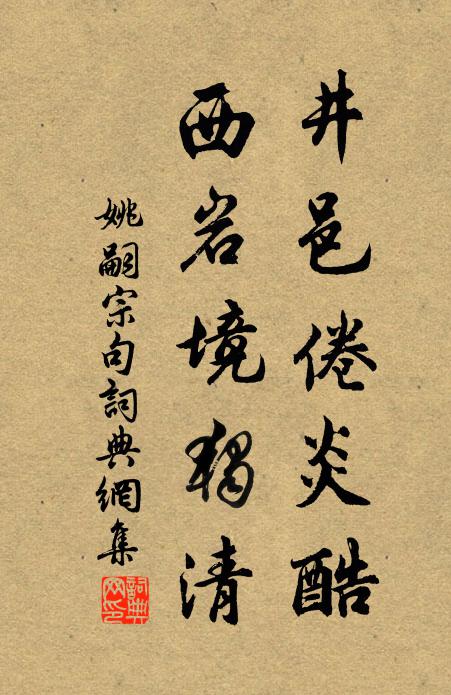 井邑倦炎酷
西岩境獨清
姚嗣宗句詞典網集
詞典网印